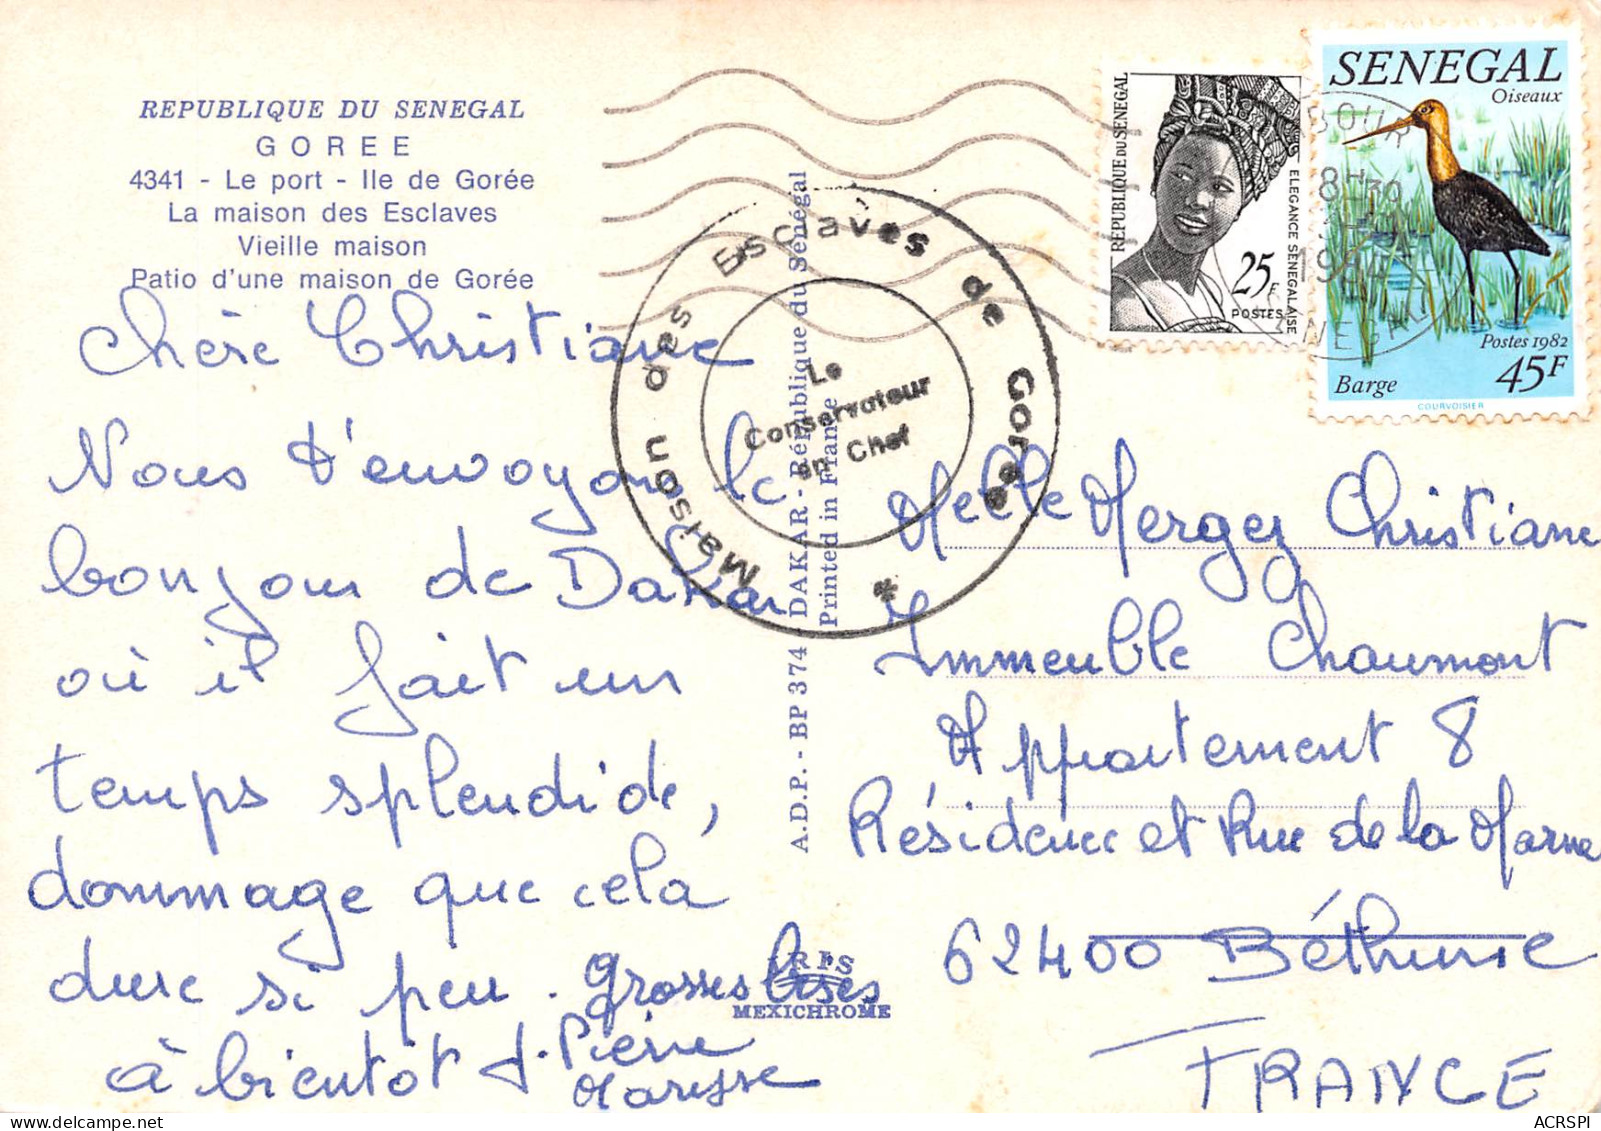 REPUBLIQUE DU SENEGAL
GOREE
4341 - Le port - Ile de Gorée
La maison des Esclaves
Vieille maison
Patio d'une maison de Gorée
Chère Christiane
Nous t'envoyons le
bonjour de Dakar
où il fait un
temps splendide,
dommage que cela
dure si peu. grosses bises
à bientôt J. Pierre
Maryse
Maison des Esclaves de Gorée *
Le
Conservateur
en Chef
A.D.P. - BP 374 - DAKAR - République du Sénégal
Printed in France
MEXICHROME
REPUBLIQUE DU SENEGAL
ELEGANCE SENEGALAISE
25F
POSTES
SENEGAL
Oiseaux
Postes 1982
Barge
45F
COURVOISIER
Melle Mergez Christiane
Immeuble Chaumont
Appartement 8
Résidence et Rue de la Marne
62400 Béthune
FRANCE
ACRSPI